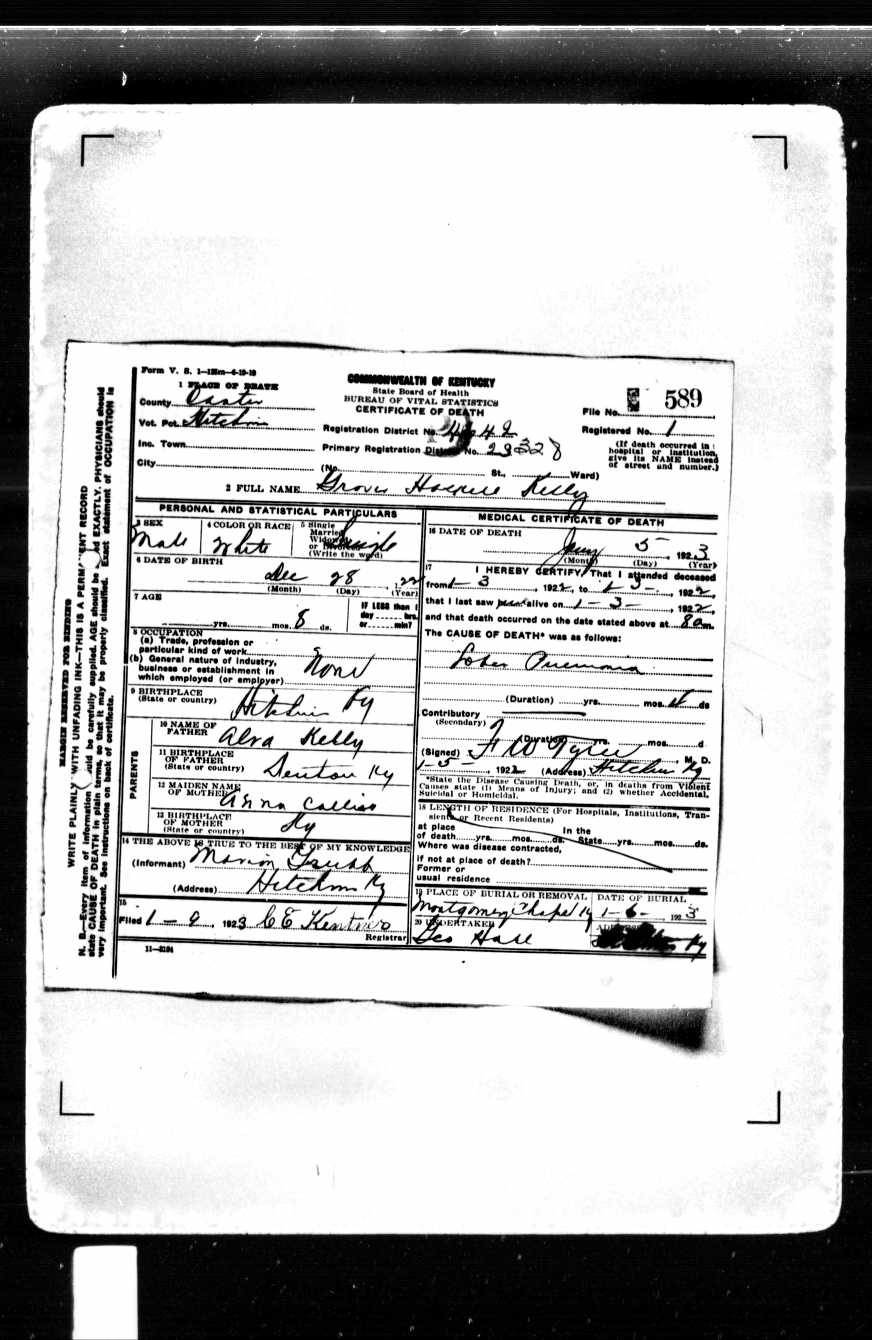 Form V. S. 1—125m—6-10-19
1 PLACE OF DEATH
County Carter
Vot. Pct. Hitchins
Inc. Town
City
COMMONWEALTH OF KENTUCKY
State Board of Health
BUREAU OF VITAL STATISTICS
CERTIFICATE OF DEATH
Registration District No.
Primary Registration District No.
(No. St., Ward)
File No. 589
Registered No. 1
(If death occurred in
hospital or institution,
give its NAME instead
of street and number.)
2 FULL NAME Grover Kelly
PERSONAL AND STATISTICAL PARTICULARS
3 SEX
Male
4 COLOR OR RACE
White
5 Single
Married
Widowed
or Divorced
(Write the word)
Single
6 DATE OF BIRTH
Dec 28 1 22
(Month) (Day) (Year)
7 AGE
yrs. mos. 8 ds.
If LESS than 1
day hrs.
or min?
8 OCCUPATION
(a) Trade, profession or
particular kind of work
(b) General nature of industry,
business or establishment in
which employed (or employer)
None
9 BIRTHPLACE
(State or country) Hitchins Ky
PARENTS
10 NAME OF
FATHER Alva Kelly
11 BIRTHPLACE
OF FATHER
(State or country) Denton Ky
12 MAIDEN NAME
OF MOTHER Anna
13 BIRTHPLACE
OF MOTHER
(State or country) Ky
14 THE ABOVE IS TRUE TO THE BEST OF MY KNOWLEDGE
(Informant) Marion Grubb
(Address) Hitchins Ky
15
Filed 1 – 9, 1923 C E
Registrar
11—3184
MEDICAL CERTIFICATE OF DEATH
16 DATE OF DEATH
Jany 5 1923
(Month) (Day) (Year)
17 I HEREBY CERTIFY, That I attended deceased
from 1 – 3, 1922, to 1 - 3 -, 1922,
that I last saw alive on 1 – 3 –, 1922,
and that death occurred on the date stated above at 8 am.
The CAUSE OF DEATH* was as follows:
Lober Pnemonia
(Duration) yrs. mos. 4 ds
Contributory
(Secondary)
(Duration) yrs. mos. d
(Signed) F W Tyree M. D.
1-5-, 192 (Address) Hitchins Ky
*State the Disease Causing Death, or, in deaths from Violent
Causes state (1) Means of Injury; and (2) whether Accidental,
Suicidal or Homicidal.
18 LENGTH OF RESIDENCE (For Hospitals, Institutions, Transients,
or Recent Residents)
at place In the
of death yrs. mos. ds. State yrs. mos. ds.
Where was disease contracted,
if not at place of death?
Former or
usual residence
19 PLACE OF BURIAL OR REMOVAL
Montgomery Chapel Ky
DATE OF BURIAL
1-6-, 1923
20 UNDERTAKER
Geo Hall
ADDRESS
Ky
MARGIN RESERVED FOR BINDING
WRITE PLAINLY WITH UNFADING INK—THIS IS A PERMANENT RECORD
N. B.—Every item of information should be carefully supplied. AGE should be stated EXACTLY. PHYSICIANS should
state CAUSE OF DEATH in plain terms, so that it may be properly classified. Exact statement of OCCUPATION is
very important. See instructions on back of certificate.